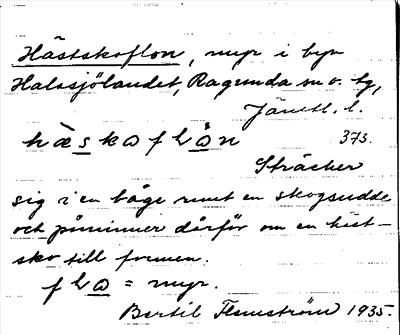 Hästskoflon, myr i byn
Halasjölandet, Ragunda sn o. tg,
Jämtl. l.
hὰskaflån 373.
Sträcker
sig i en båge runt en skogsudde
och påminner därför om en häst-
sko till formen.
fla = myr.
Bertil Flemström 1935.